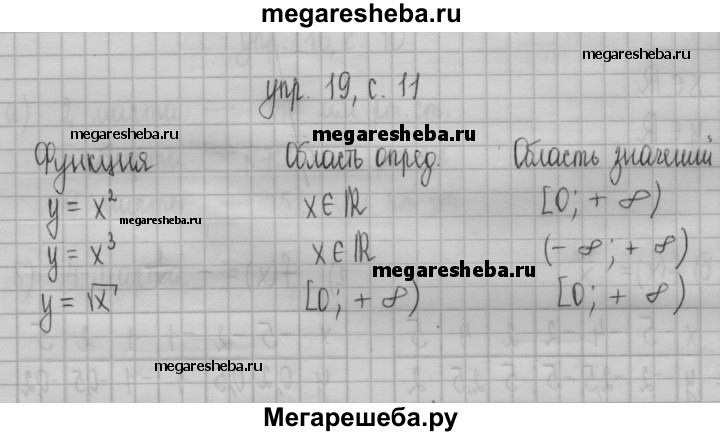 megaresheba.ru
megaresheba.ru
упр. 19, с. 11
megaresheba.ru megaresheba.ru
Функция Область опред. Область значений
y = x² x∈ℝ [0; + ∞)
megaresheba.ru
y = x³ x∈ℝ (- ∞; + ∞)
megaresheba.ru
y = √x [0; + ∞) [0; + ∞)
megaresheba.ru
megaresheba.ru
Мегарешеба.ру